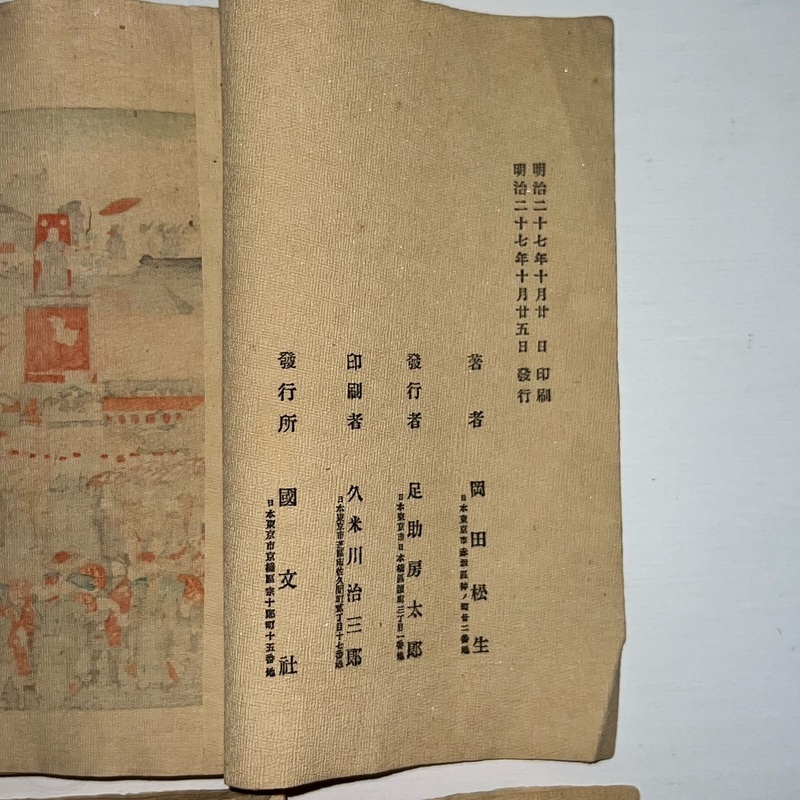 明治二十七年十月廿日印刷
明治二十七年十月廿五日發行
著者 岡田松生
日本東京市赤坂區 ノ町廿二番地
發行者 足助房太郎
日本東京市日本橋區 町三丁目一番地
印刷者 久米川治三郎
日本東京市芝區南佐久間町貳丁目十七番地
發行所 國文社
日本東京市京橋區宗十郎町十五番地